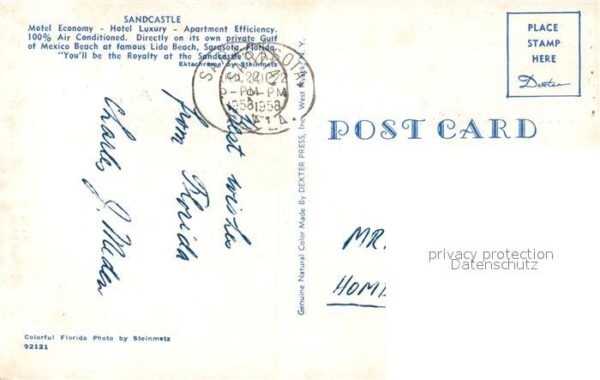 SANDCASTLE
Motel Economy - Hotel Luxury - Apartment Efficiency.
100% Air Conditioned. Directly on its own private Gulf
of Mexico Beach at famous Lido Beach, Sarasota, Florida.
"You'll be the Royalty at the Sandcastle"
Ektachrome by Steinmetz
SARASOTA
PM
1958
FLA.
Best wishes
from Florida
Charles J.
Genuine Natural Color Made By DEXTER PRESS, Inc. West Nyack, N. Y.
PLACE
STAMP
HERE
Dexter
POST CARD
MR.
HOME
privacy protection
Datenschutz
Colorful Florida Photo by Steinmetz
92121